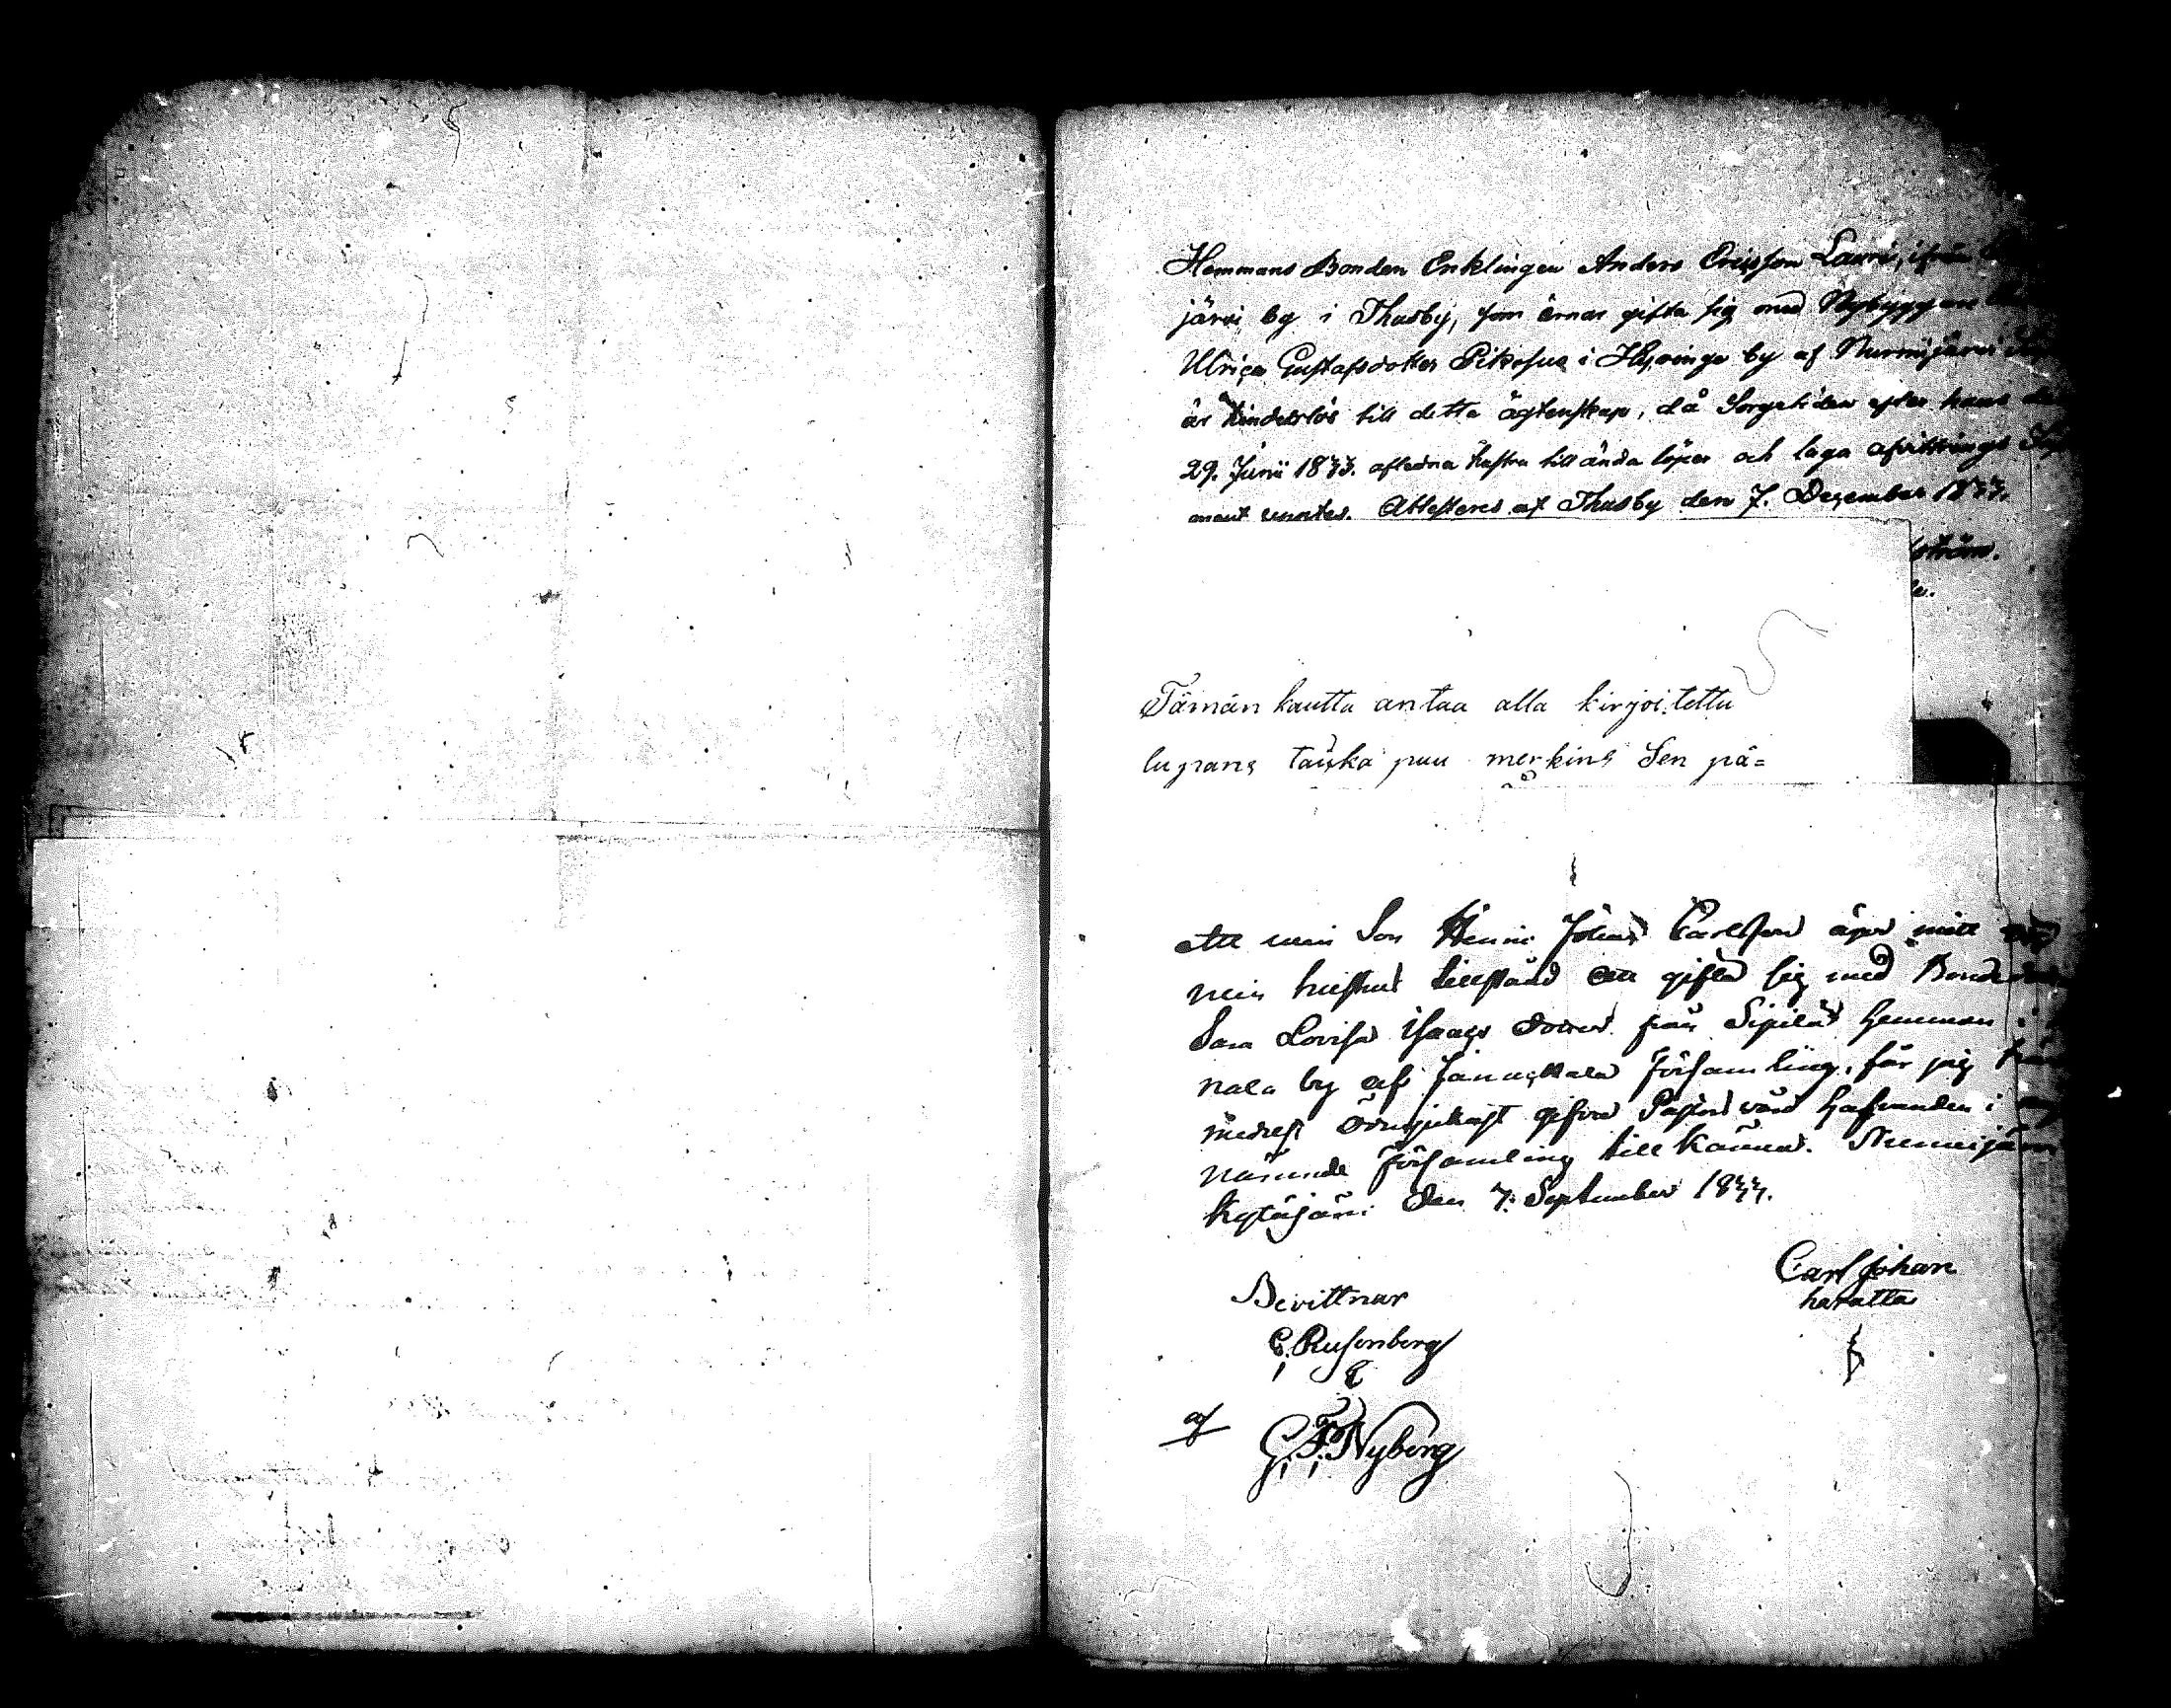 Hemmans Bonden Enklingen Anders Ericsson Lauri, ifrån
järvi by i Thusby, som ärnar gifta sig med Nybyggare
Ulrica Gustafsdotter Pitkesuo i Hyvinge by af Nurmijärvi
är hinderlös till detta ägtenskap, då Sorgetiden efter hans
29. Junii 1844. afledna hustru till ända löper och laga afvittrings
ment wunnes. Attesteras af Thusby den 7. December 1844.
ström.
Tämän kautta antaa alla kirjoitettu
lupans taicka puu merkins Sen pä=
att min Son Henric Johan Carlsson äger mitt
min hustrus tillstånd att gifta sig med Bonde
Sara Lovisa Isaacs dotter från Sipilä hemman i
nala by af Janackala församling, får jag
medelst ödmjukast gifva Pastors vård hafvanden i
nämnde församling tillkänna. Nurmijärvi
Kytäjärvi den 7. September 1844.
Carl Johan
Bevittnar
haratta
C. Rusenberg
af G. F. Nyberg